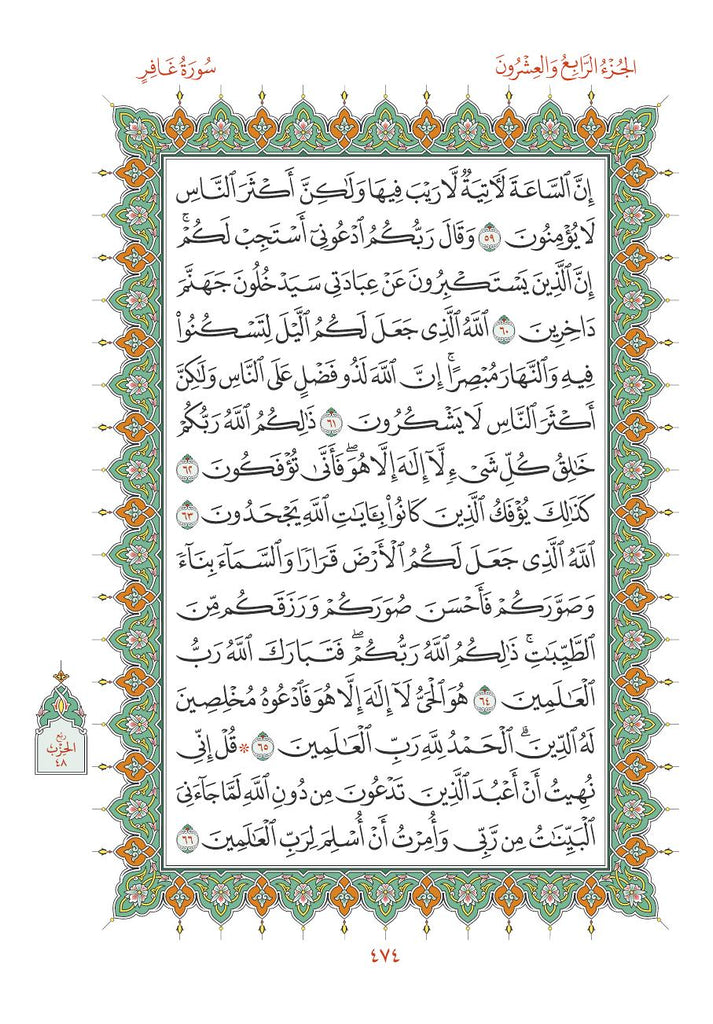 الجُزْءُ الرَّابِعُ وَالعِشْرُونَ
سُورَةُ غَافِرٍ
إِنَّ ٱلسَّاعَةَ لَأٓتِيَةٌ لَّا رَيْبَ فِيهَا وَلَٰكِنَّ أَكْثَرَ ٱلنَّاسِ
لَا يُؤْمِنُونَ ٥٩ وَقَالَ رَبُّكُمُ ٱدْعُونِيٓ أَسْتَجِبْ لَكُمْۚ
إِنَّ ٱلَّذِينَ يَسْتَكْبِرُونَ عَنْ عِبَادَتِي سَيَدْخُلُونَ جَهَنَّمَ
دَاخِرِينَ ٦٠ ٱللَّهُ ٱلَّذِي جَعَلَ لَكُمُ ٱلَّيْلَ لِتَسْكُنُوا۟
فِيهِ وَٱلنَّهَارَ مُبْصِرًاۚ إِنَّ ٱللَّهَ لَذُو فَضْلٍ عَلَى ٱلنَّاسِ وَلَٰكِنَّ
أَكْثَرَ ٱلنَّاسِ لَا يَشْكُرُونَ ٦١ ذَٰلِكُمُ ٱللَّهُ رَبُّكُمْ
خَٰلِقُ كُلِّ شَيْءٍ لَّآ إِلَٰهَ إِلَّا هُوَۖ فَأَنَّىٰ تُؤْفَكُونَ ٦٢
كَذَٰلِكَ يُؤْفَكُ ٱلَّذِينَ كَانُوا۟ بِـَٔايَٰتِ ٱللَّهِ يَجْحَدُونَ ٦٣
ٱللَّهُ ٱلَّذِي جَعَلَ لَكُمُ ٱلْأَرْضَ قَرَارًا وَٱلسَّمَآءَ بِنَآءً
وَصَوَّرَكُمْ فَأَحْسَنَ صُوَرَكُمْ وَرَزَقَكُم مِّنَ
ٱلطَّيِّبَٰتِۚ ذَٰلِكُمُ ٱللَّهُ رَبُّكُمْۖ فَتَبَارَكَ ٱللَّهُ رَبُّ
ٱلْعَٰلَمِينَ ٦٤ هُوَ ٱلْحَيُّ لَآ إِلَٰهَ إِلَّا هُوَ فَٱدْعُوهُ مُخْلِصِينَ
لَهُ ٱلدِّينَۗ ٱلْحَمْدُ لِلَّهِ رَبِّ ٱلْعَٰلَمِينَ ٦٥ ۞ قُلْ إِنِّي
نُهِيتُ أَنْ أَعْبُدَ ٱلَّذِينَ تَدْعُونَ مِن دُونِ ٱللَّهِ لَمَّا جَآءَنِيَ
ٱلْبَيِّنَٰتُ مِن رَّبِّي وَأُمِرْتُ أَنْ أُسْلِمَ لِرَبِّ ٱلْعَٰلَمِينَ ٦٦
ربع
الحِزْب
٤٨
٤٧٤